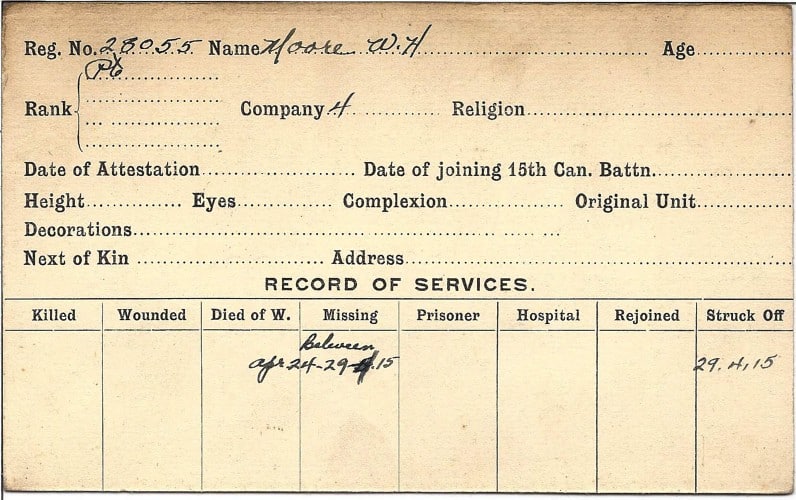 Reg. No. 28055 Name Moore W.H Age
Pte
Rank Company 4 Religion
Date of Attestation Date of joining 15th Can. Battn.
Height Eyes Complexion Original Unit
Decorations
Next of Kin Address
RECORD OF SERVICES.
Killed Wounded Died of W. Missing Prisoner Hospital Rejoined Struck Off
Between
Apr 24-29-4.15 29.4.15